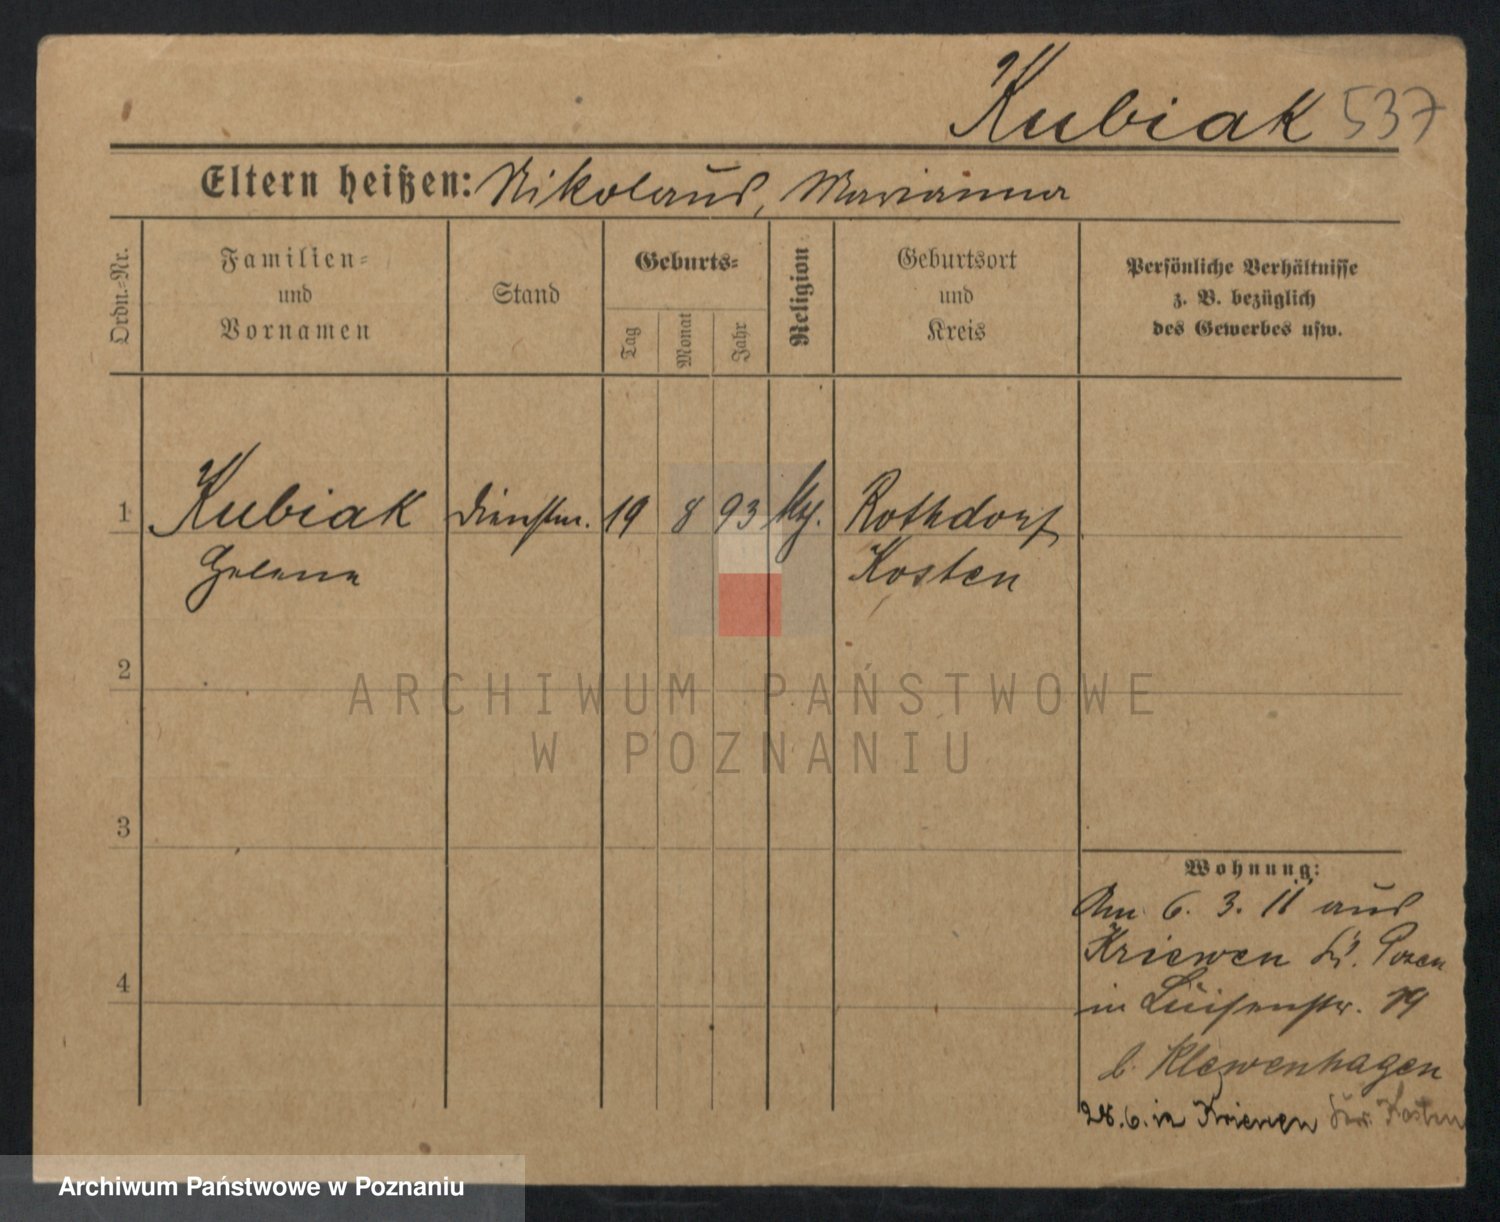 Kubiak 537
Eltern heißen: Nikolaus, Marianna
Ordn.-Nr.
Familien-
und
Vornamen
Stand
Geburts-
Tag
Monat
Jahr
Religion
Geburtsort
und
Kreis
Persönliche Verhältnisse
z. B. bezüglich
des Gewerbes usw.
1 Kubiak Dienstm. 19 8 93 Rothdorf
Helene Kosten
2
ARCHIWUM PAŃSTWOWE
W POZNANIU
3
Wohnung:
Am 6. 3. 11 aus
Kriewen Posen
4
in Luisenstr. 19
b. Klewenhagen
28.6. in Kriewen Kosten
Archiwum Państwowe w Poznaniu